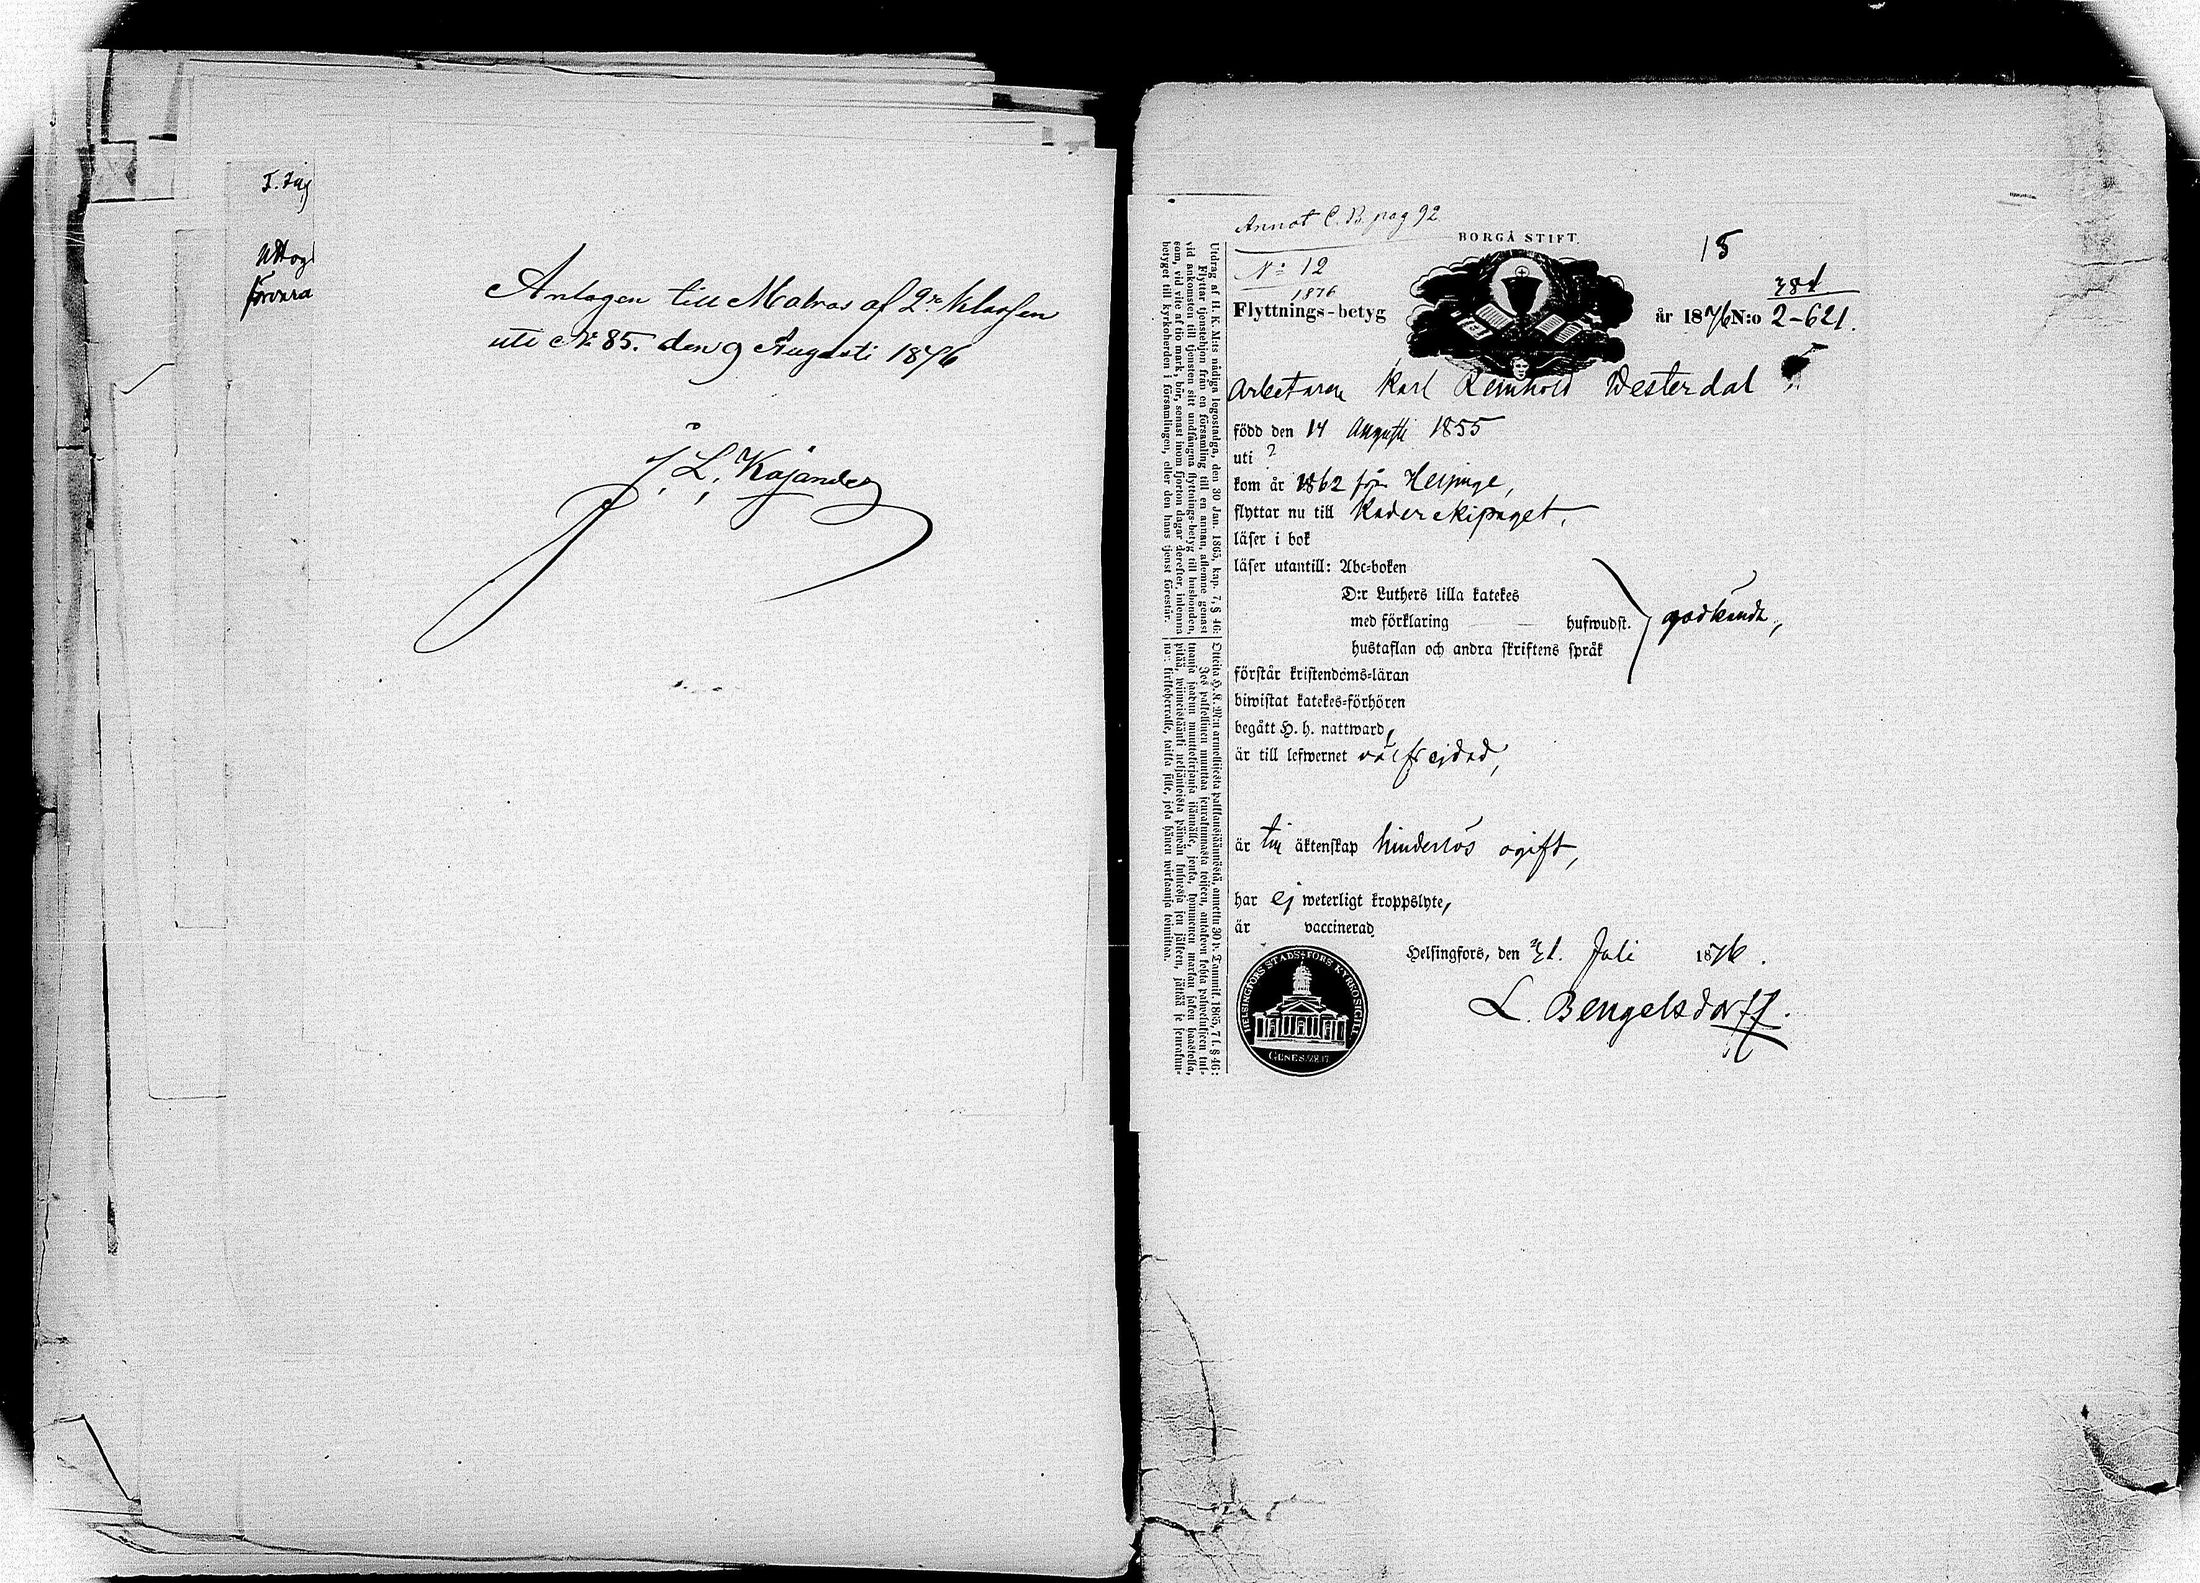 Antagen till Matros af 2:ra klassen
uti N: 85. den 9 Augusti 1876
J. L. Kajander
Annot C. B. pag 92
N: 12
1876
BORGÅ STIFT.
15
381
Flyttnings-betyg
år 1876 N:o 2-621.
Arbetaren Karl Reinhold Westerdal
född den 14 Augusti 1855
uti ?
kom år 1862 från
flyttar nu till Kader ekipaget,
läser i bok
läser utantill: Abc-boken
D:r Luthers lilla katekes
med förklaring hufwudst.
hustaflan och andra skriftens språk
godkändt,
förstår kristendoms-läran
biwistat katekes-förhören
begått H. h. nattward,
är till lefwernet välfrejdad,
är till äktenskap hinderlös ogift,
har ej weterligt kroppslyte,
är vaccinerad
Helsingfors, den 31. Juli 1876.
L. Bengelsdorff.
HELSINGFORS STADSFÖRS. KYRKOSIGILL
GENES. 28.17.
Utdrag af H. K. M:ts nådiga legostadga, den 30 Jan. 1865, kap. 7, § 46:
Flyttar tjenstehjon från en församling till en annan, aflemne genast
vid ankomsten till tjensten sitt undfångna flyttnings-betyg till husbonden,
som, vid vite af tio mark, bör, senast inom fjorton dagar derefter, inlemna
betyget till kyrkoherden i församlingen, eller den hans tjenst förestår.